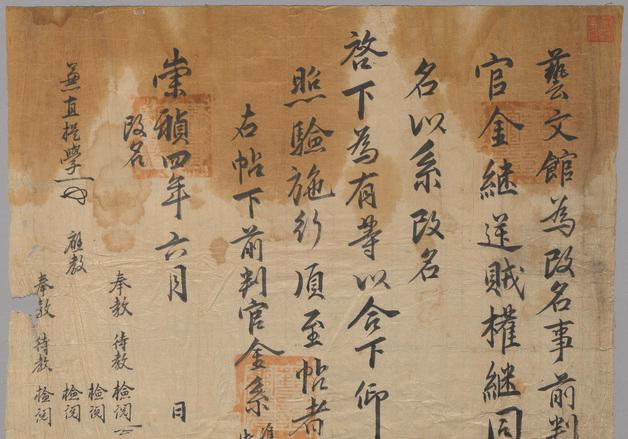 藝文館為改名事前判
官金継送賊權継同
名以系改名
啓下為有等以合下仰
照驗施行湏至帖者
右帖下前判官金系
崇禎四年六月 日
改名
奉教 待教 檢閱
檢閱
兼直提學
應教 檢閱
奉教 待教 檢閱